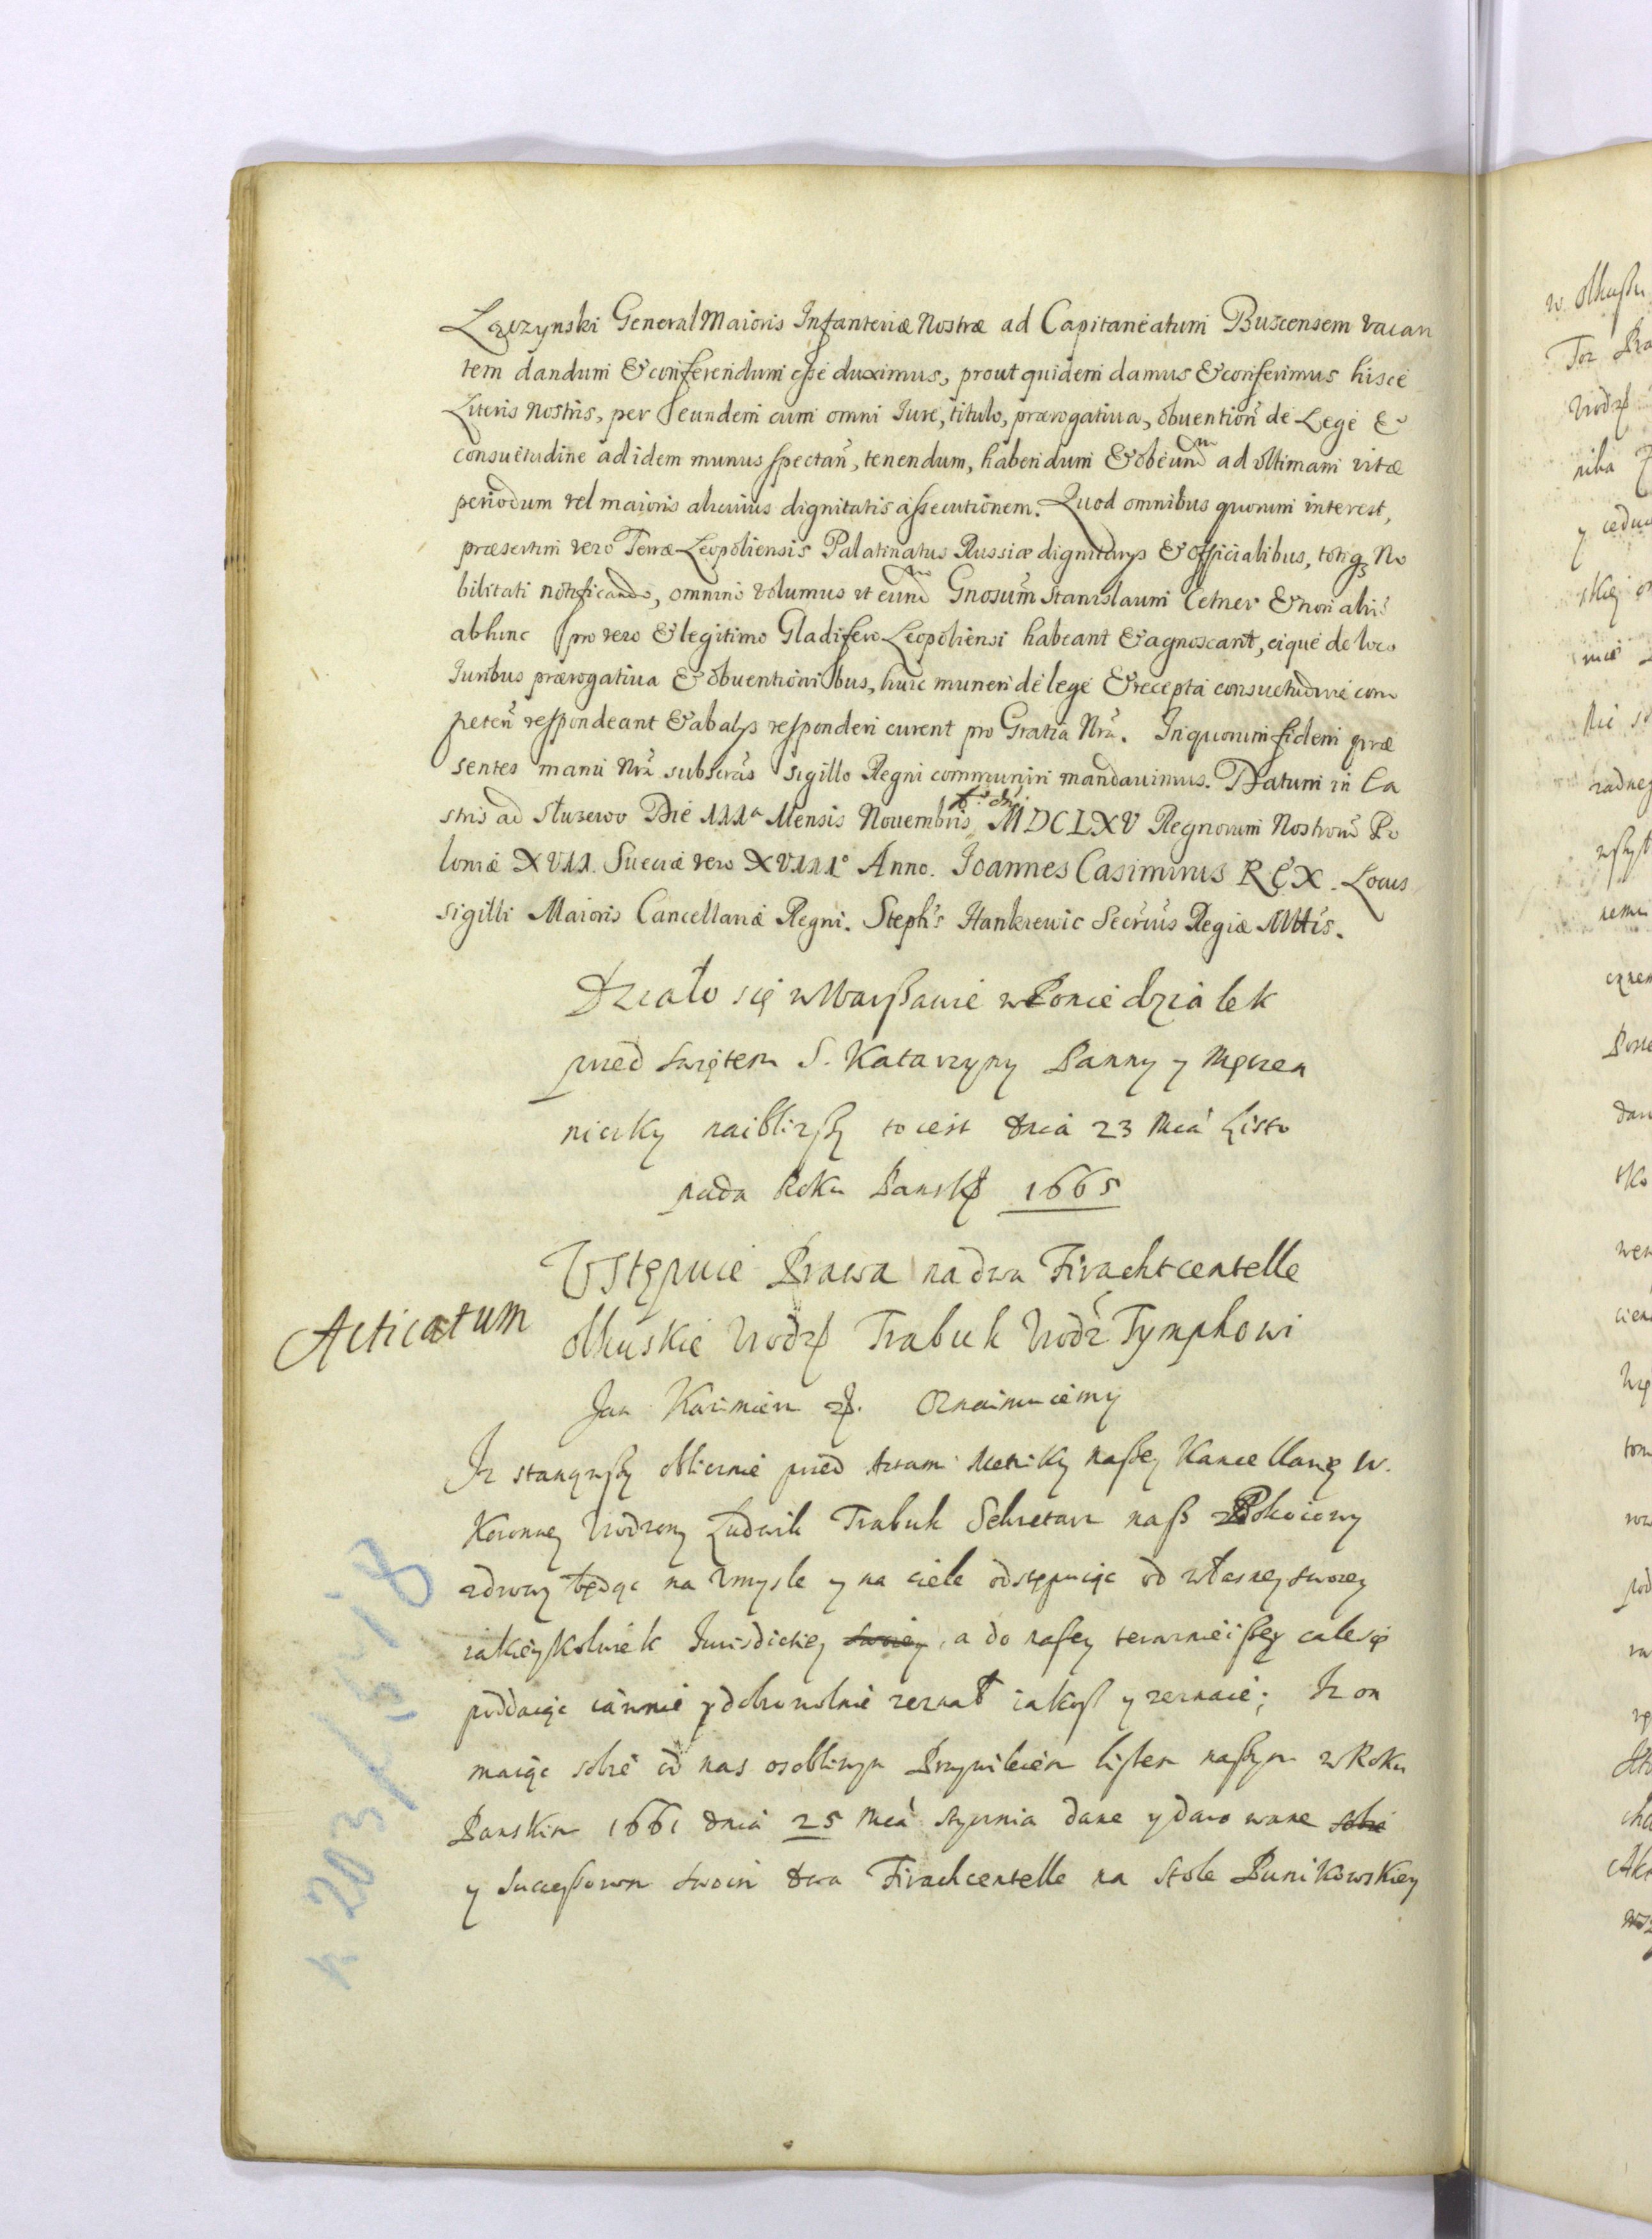 Lączynski General Maioris Infanteriæ Nostræ ad Capitaneatum Buscensem vacan
tem dandum & conferendum esse duximus, prout quidem damus & conferimus hisce
Literis Nostris, per eundem cum omni Iure, titulo, prærogatiua, obuention̄ de Lege &
consuetudine ad idem munus spectan̄, tenendum, habendum & obeund ad vltimam vitæ
periodum vel maioris alicuius dignitatis assecutionem. Quod omnibus quorum interest,
præsertim vero Terræ Leopoliensis Palatinatus Russiæ dignitarys & officialibus, totiqꝫ No
bilitati notificando, omnino volumus vt eund Gnosum̄ Stanislaum Cetner & non aliū
abhinc pro vero & legitimo Gladifero Leopoliensi habeant & agnoscant, eique de loco
Iuribus prærogatiua & obuentionibus, huic muneri de lege & recepta consuetudine com
peten̄ respondeant & ab alys responderi curent pro Gratia Nrā. In quorum fidem præ
sentes manu Nrā subscrās sigillo Regni communiri mandauimus. Datum in Ca
stris ad Służewo Die IIIa Mensis Nouembris Ao dni MDCLXV Regnorum Nostrorū Po
loniæ XVII. Sueciæ vero XVIIIo Anno. Ioannes Casimirus REX. Locus
sigilli Maioris Cancellariæ Regni. Steph̄s Hankiewic Secr̄ius Regiæ Mttis.
Działo się w Warßawie w Poniedziałek
przed Swiętem S. Katarzyny Panny y Męczen
niczky naibliższy to iest dnia 23 Mca Listo
pada Roku Pansk 1665
Vstępuie Prawa na dwa Firachtcentelle
Acticatum
olkuskie Urodz Trabuk Urodz Tymphowi
Jan Kazimierz z. Oznaimuiemy
Iz stanąwszy oblicznie przed Actami Metriky naßey Kancellaryey W.
Koronney Urodzony Ludwik Trabuk Sekretarz naß Pokoiowy
zdrowy będąc na Vmysle y na ciele odstępuiąc od własney swoiey
iakieyskolwiek Jurisdictiey swoiey, a do naßey terazniejßey cale się
poddaiąc iawnie y dobrowolnie zeznał iakoß y zeznaie; Iz on
maiąc sobie od nas osobliwym Przywileiem listem naßym w Roku
Panskim 1661 dnia 25 Mca Stycznia dane y darowane sobie
y Successorom swoim dwa Firachcentelle na Stole Ponikowskiey
n 203/1578